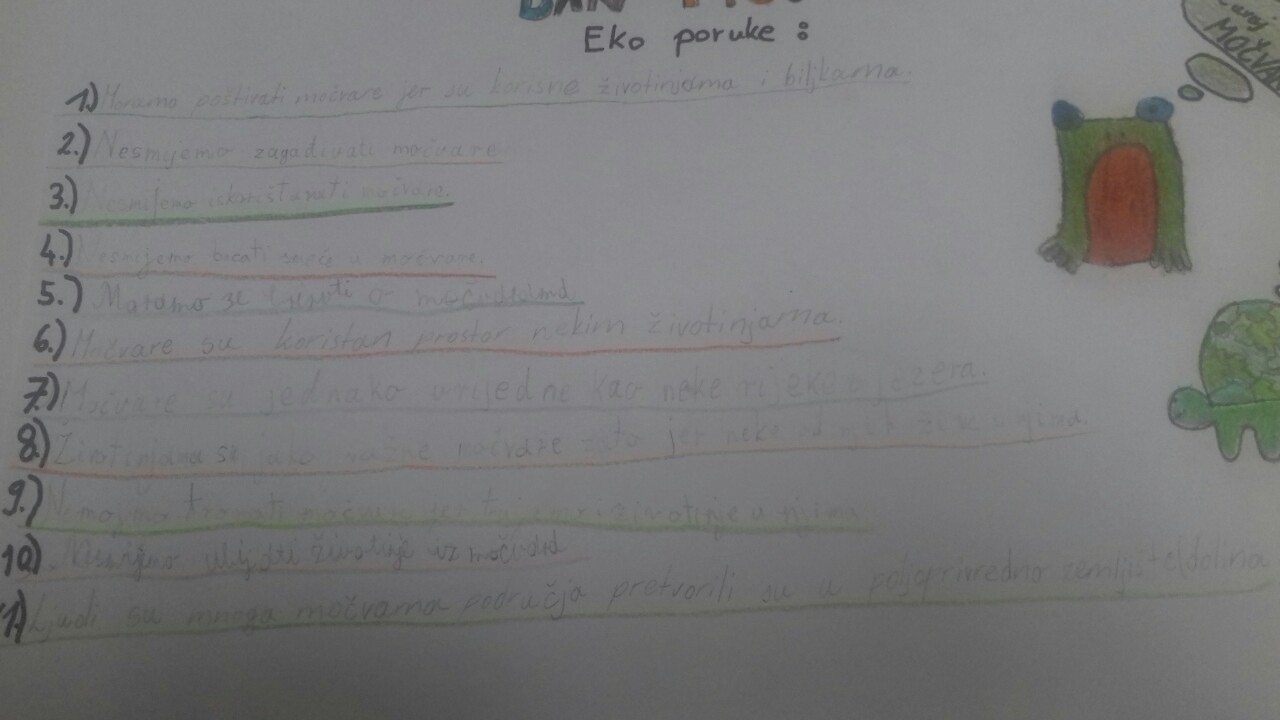 DAN
Eko poruke :
MOČVARA
1.) Moramo poštivati močvare jer su korisne životinjama i biljkama.
2.) Nesmijemo zagađivati močvare
3.) Nesmijemo iskorištavati močvare.
4.) Nesmijemo bacati smeće u močvare.
5.) Moramo se o močvarama.
6.) Močvare su koristan prostor nekim životinjama.
7.) Močvare su jednako vrijedne kao neke rijeke i jezera.
8.) Životinjama su jako močvare zato jer neke od njih žive u njima.
9.) Nemojmo močvare jer i životinje u njima
10.) Nesmijemo životinje iz močvara
11.) Ljudi su mnoga močvarna područja pretvorili su u poljoprivredno zemljište(dolina